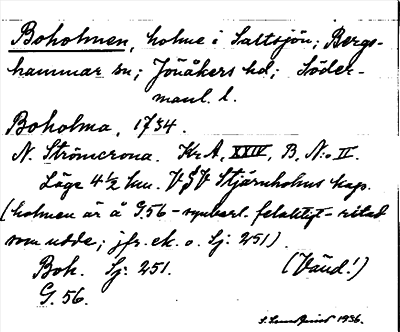 Boholmen, holme i Saltsjön; Bergs-
hammar sn; Jönåkers hd; Söder-
manl. l.
Boholma, 1734.
N. Strömcrona. Kr.A, XXIV, B. No II.
Läge 4½ km. VSV Stjärnholms kap.
(holmen är å G.56 - synberl. felaktigt - ritad
som udde; jfr. ek. o. Sj: 251).
Boh. Sj: 251. (Vänd!)
G. 56.
1936.